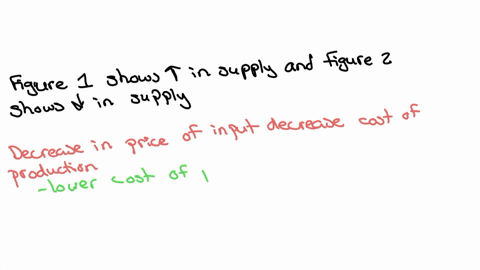 Figure 1 shows ↑ in supply and figure 2
shows ↓ in supply
Decrease in price of input decrease cost of
production
-lower cost of